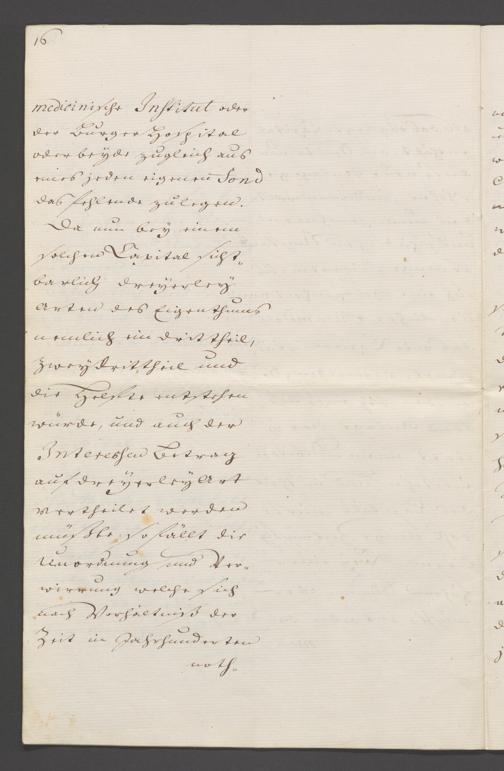 16
medicinische Institut oder
der Burger Hospital
oder beyde zugleich aus
eines jeden eigenen Fond
das fehlende zulegen.
Da nun bey einem
solchen Capital sicht-
barlich dreyerley
Arten des Eigenthums
nemlich ein drittheil,
zwey drittheil und
die Helfte entstehen
würde, und auch der
Interessen Betrag
auf dreyerley Art
vertheilet werden
müsste, so fällt die
Unordnung und Ver-
wirrung welche sich
nach Verhältniß der
Zeit in Jahrhunderten
noth-